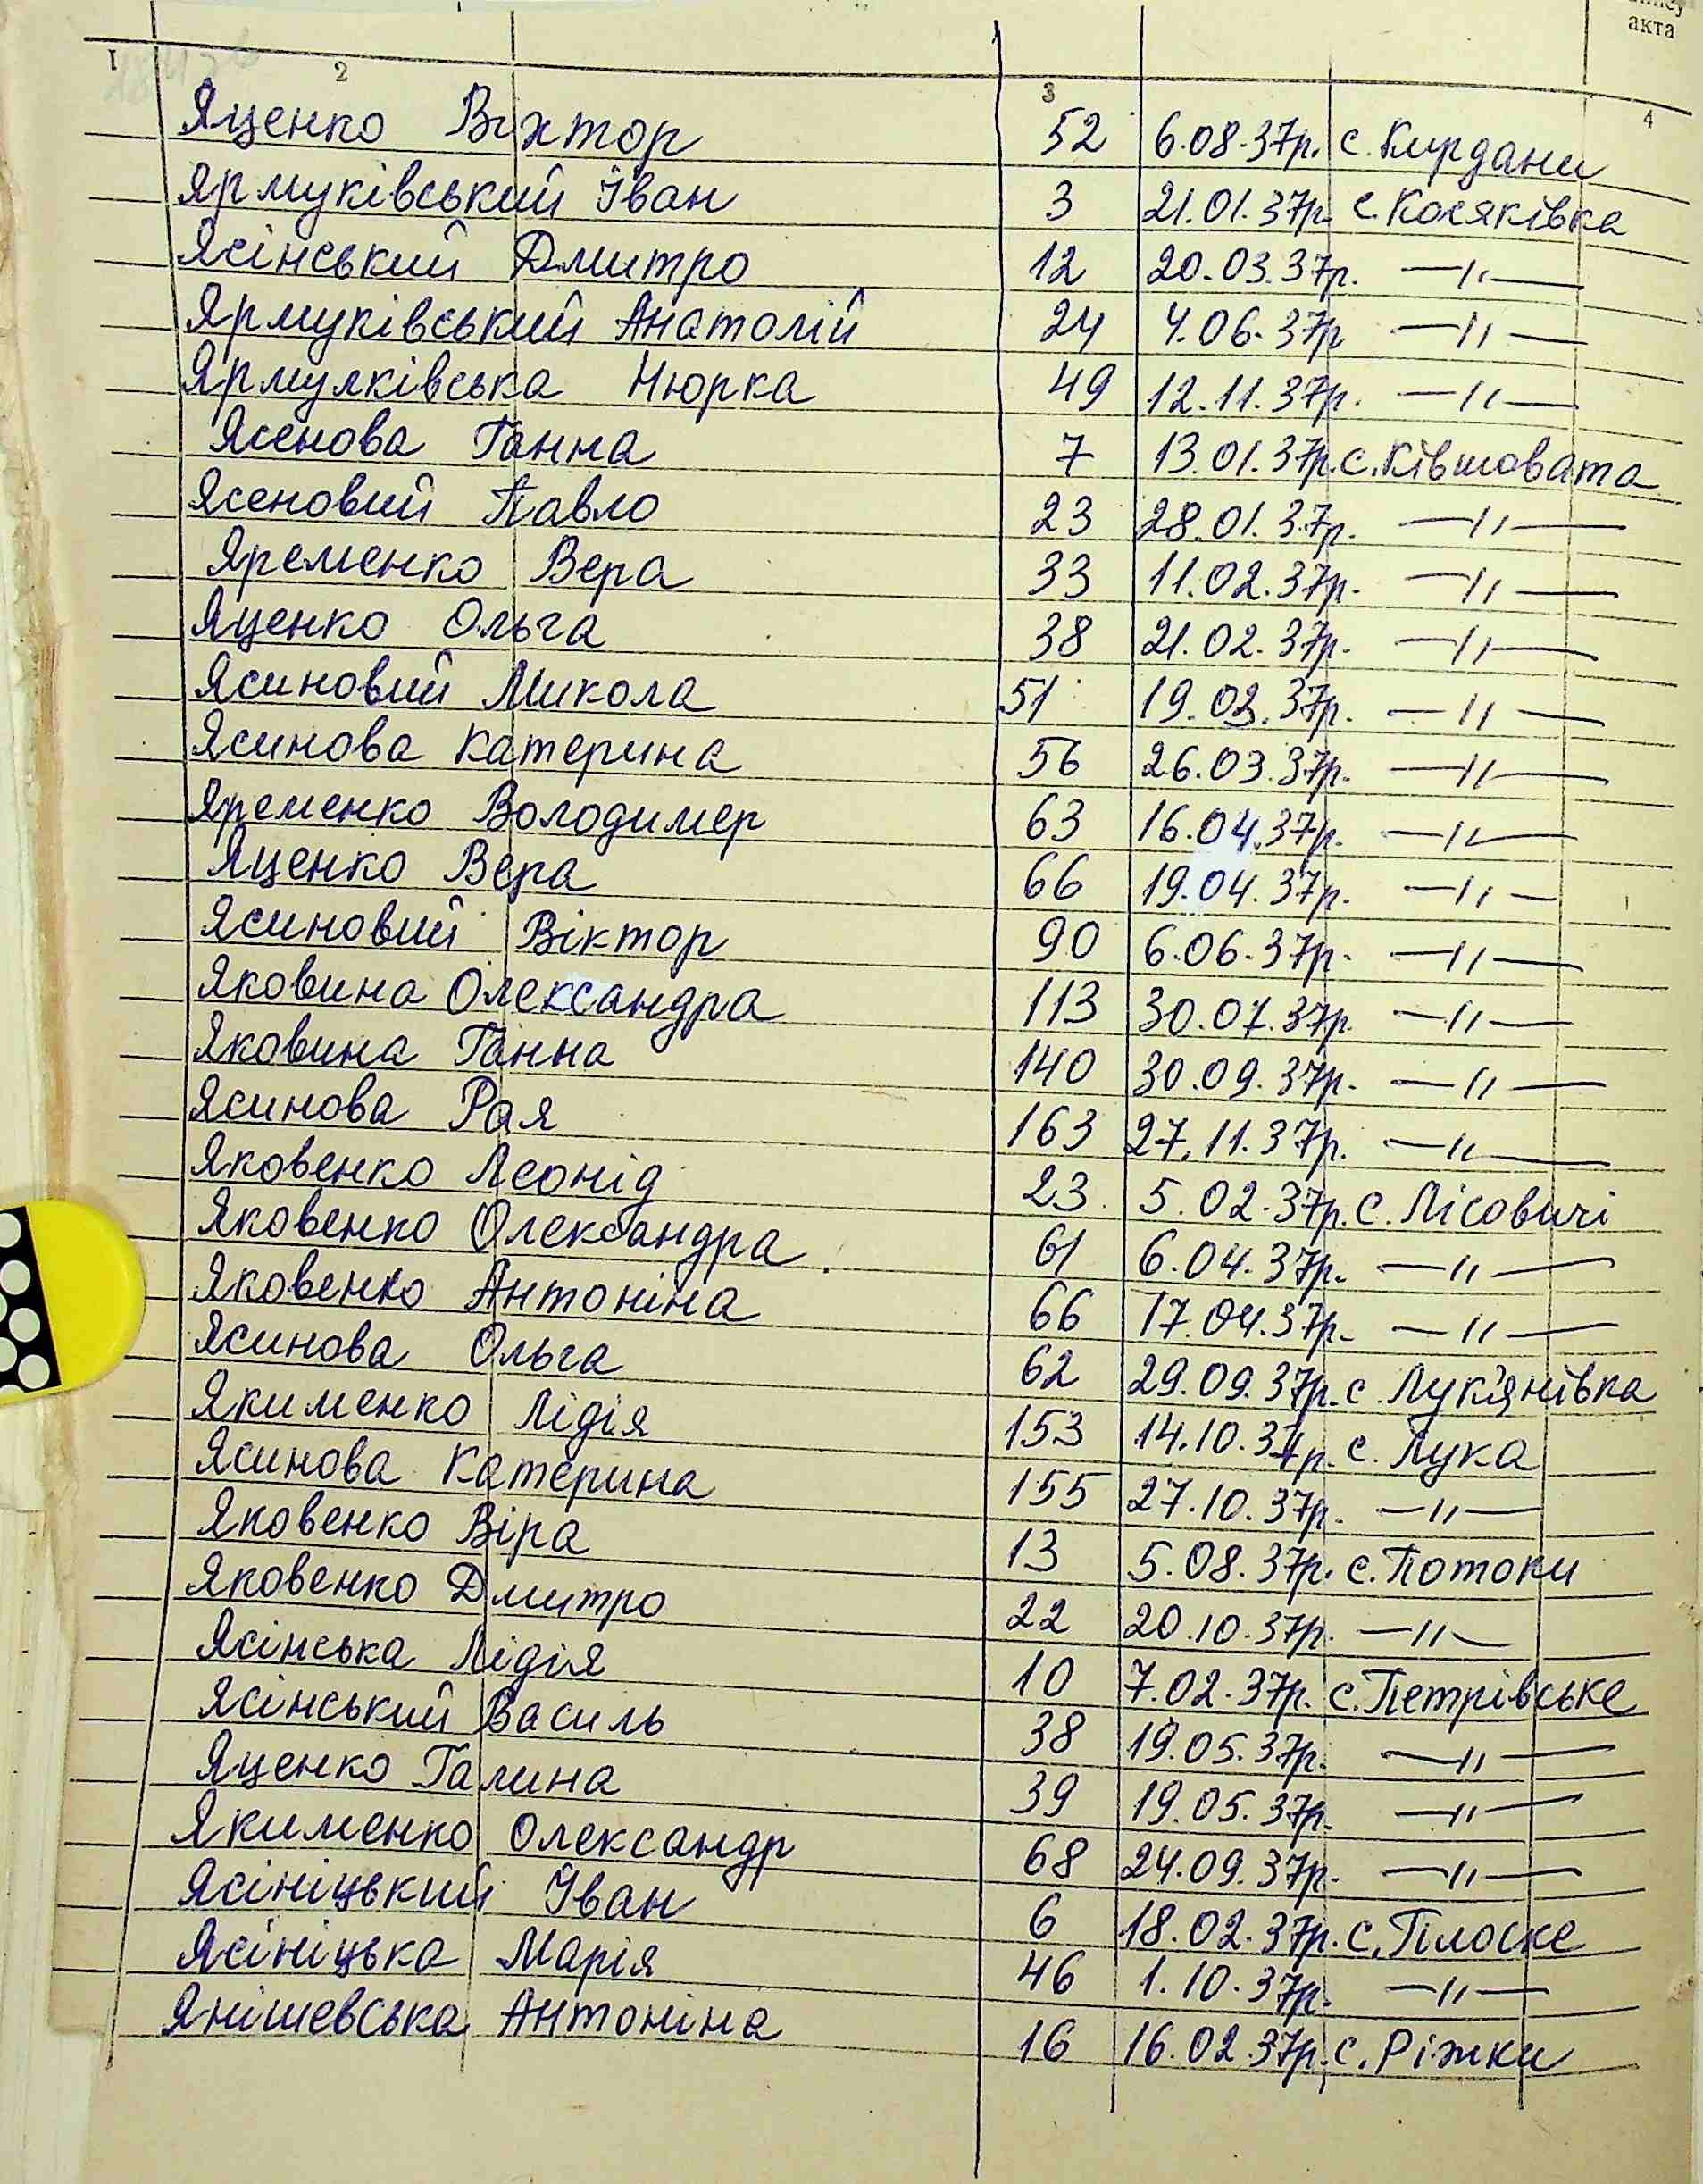 акта
1 2 3 4
Яценко Віктор 52 6.08.37р. с. Кирдани
Ярмуківський Іван 3 21.01.37р. с. Косяківка
Ясінський Дмитро 12 20.03.37р. —〃—
Ярмуківський Анатолій 24 4.06.37р —〃—
Ярмулківська Нюрка 49 12.11.37р. —〃—
Ясенова Ганна 7 13.01.37р. с. Ківшовата
Ясеновий Павло 23 28.01.37р. —〃—
Яременко Вера 33 11.02.37р. —〃—
Яценко Ольга 38 21.02.37р. —〃—
Ясиновий Микола 51 19.03.37р. —〃—
Ясинова Катерина 56 26.03.37р. —〃—
Яременко Володимер 63 16.04.37р. —〃—
Яценко Вера 66 19.04.37р. —〃—
Ясиновий Віктор 90 6.06.37р. —〃—
Яковина Олександра 113 30.07.37р. —〃—
Яковина Ганна 140 30.09.37р. —〃—
Ясинова Рая 163 27.11.37р. —〃—
Яковенко Леонід 23 5.02.37р. с. Лісовичі
Яковенко Олександра 61 6.04.37р. —〃—
Яковенко Антоніна 66 17.04.37р. —〃—
Ясинова Ольга 62 29.09.37р. с. Лук'янівка
Якименко Лідія 153 14.10.37р. с. Лука
Ясинова Катерина 155 27.10.37р. —〃—
Яковенко Віра 13 5.08.37р. с. Потоки
Яковенко Дмитро 22 20.10.37р. —〃—
Ясінська Лідія 10 7.02.37р. с. Петрівське
Ясінський Василь 38 19.05.37р. —〃—
Яценко Галина 39 19.05.37р. —〃—
Якименко Олександр 68 24.09.37р. —〃—
Ясініцький Іван 6 18.02.37р. с. Плоске
Ясініцька Марія 46 1.10.37р. —〃—
Янішевська Антоніна 16 16.02.37р. с. Ріжки